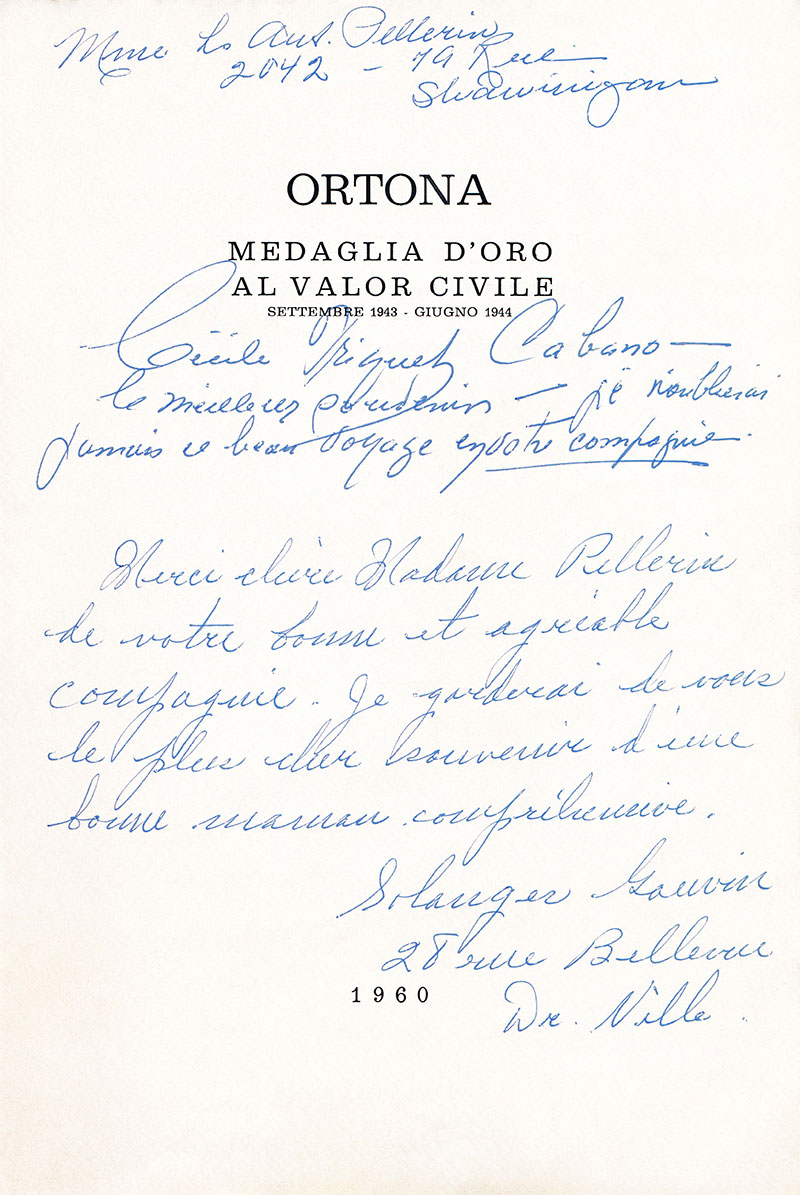 Mme Ls Ant. Pellerin
2042 - 79 Rue
Shawinigan
ORTONA
MEDAGLIA D'ORO
AL VALOR CIVILE
SETTEMBRE 1943 - GIUGNO 1944
Cécile Triquet Cabano —
le meilleur souvenir — je n'oublierai
jamais ce beau voyage en votre compagnie.
Merci chère Madame Pellerin
de votre bonne et agréable
compagnie. Je garderai de vous
le plus cher souvenir d'une
bonne maman compréhensive.
Solanger Gauvin
28 rue Bellevue
1960
Dr. Ville.